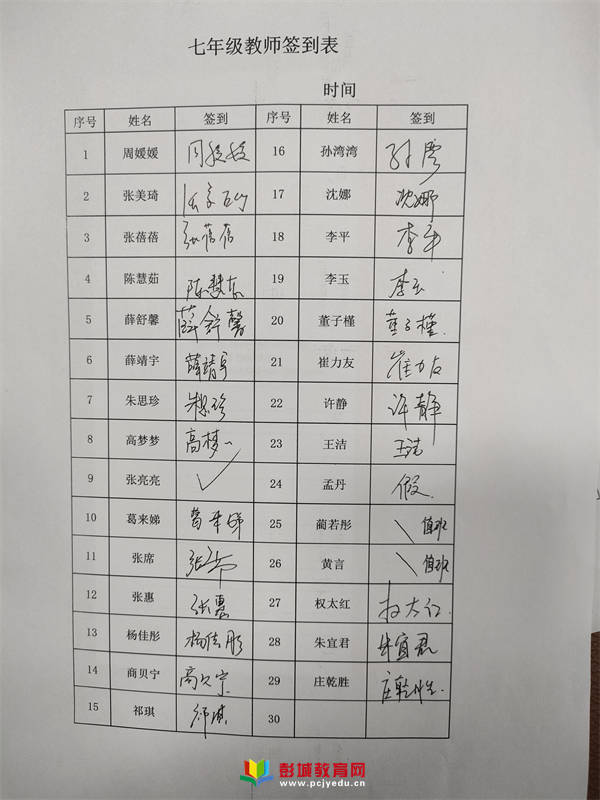 七年级教师签到表
时间
序号 姓名 签到 序号 姓名 签到
1 周媛媛 周媛媛 16 孙湾湾 孙湾
2 张美琦 17 沈娜 沈娜
3 张蓓蓓 张蓓蓓 18 李平 李平
4 陈慧茹 陈慧茹 19 李玉 李玉
5 薛舒馨 薛舒馨 20 董子槿 董子槿
6 薛靖宇 薛靖宇 21 崔力友 崔力友
7 朱思珍 朱思珍 22 许静 许静
8 高梦梦 高梦 23 王洁 王洁
9 张亮亮 ✓ 24 孟丹 假
10 葛来娣 葛来娣 25 蔺若彤 \ 值班
11 张席 张席 26 黄言 \ 值班
12 张惠 张惠 27 权太红 权太红
13 杨佳彤 杨佳彤 28 朱宜君 朱宜君
14 商贝宁 商贝宁 29 庄乾胜 庄乾胜
15 祁琪 祁琪 30
彭城教育网
www.pcjyedu.cn